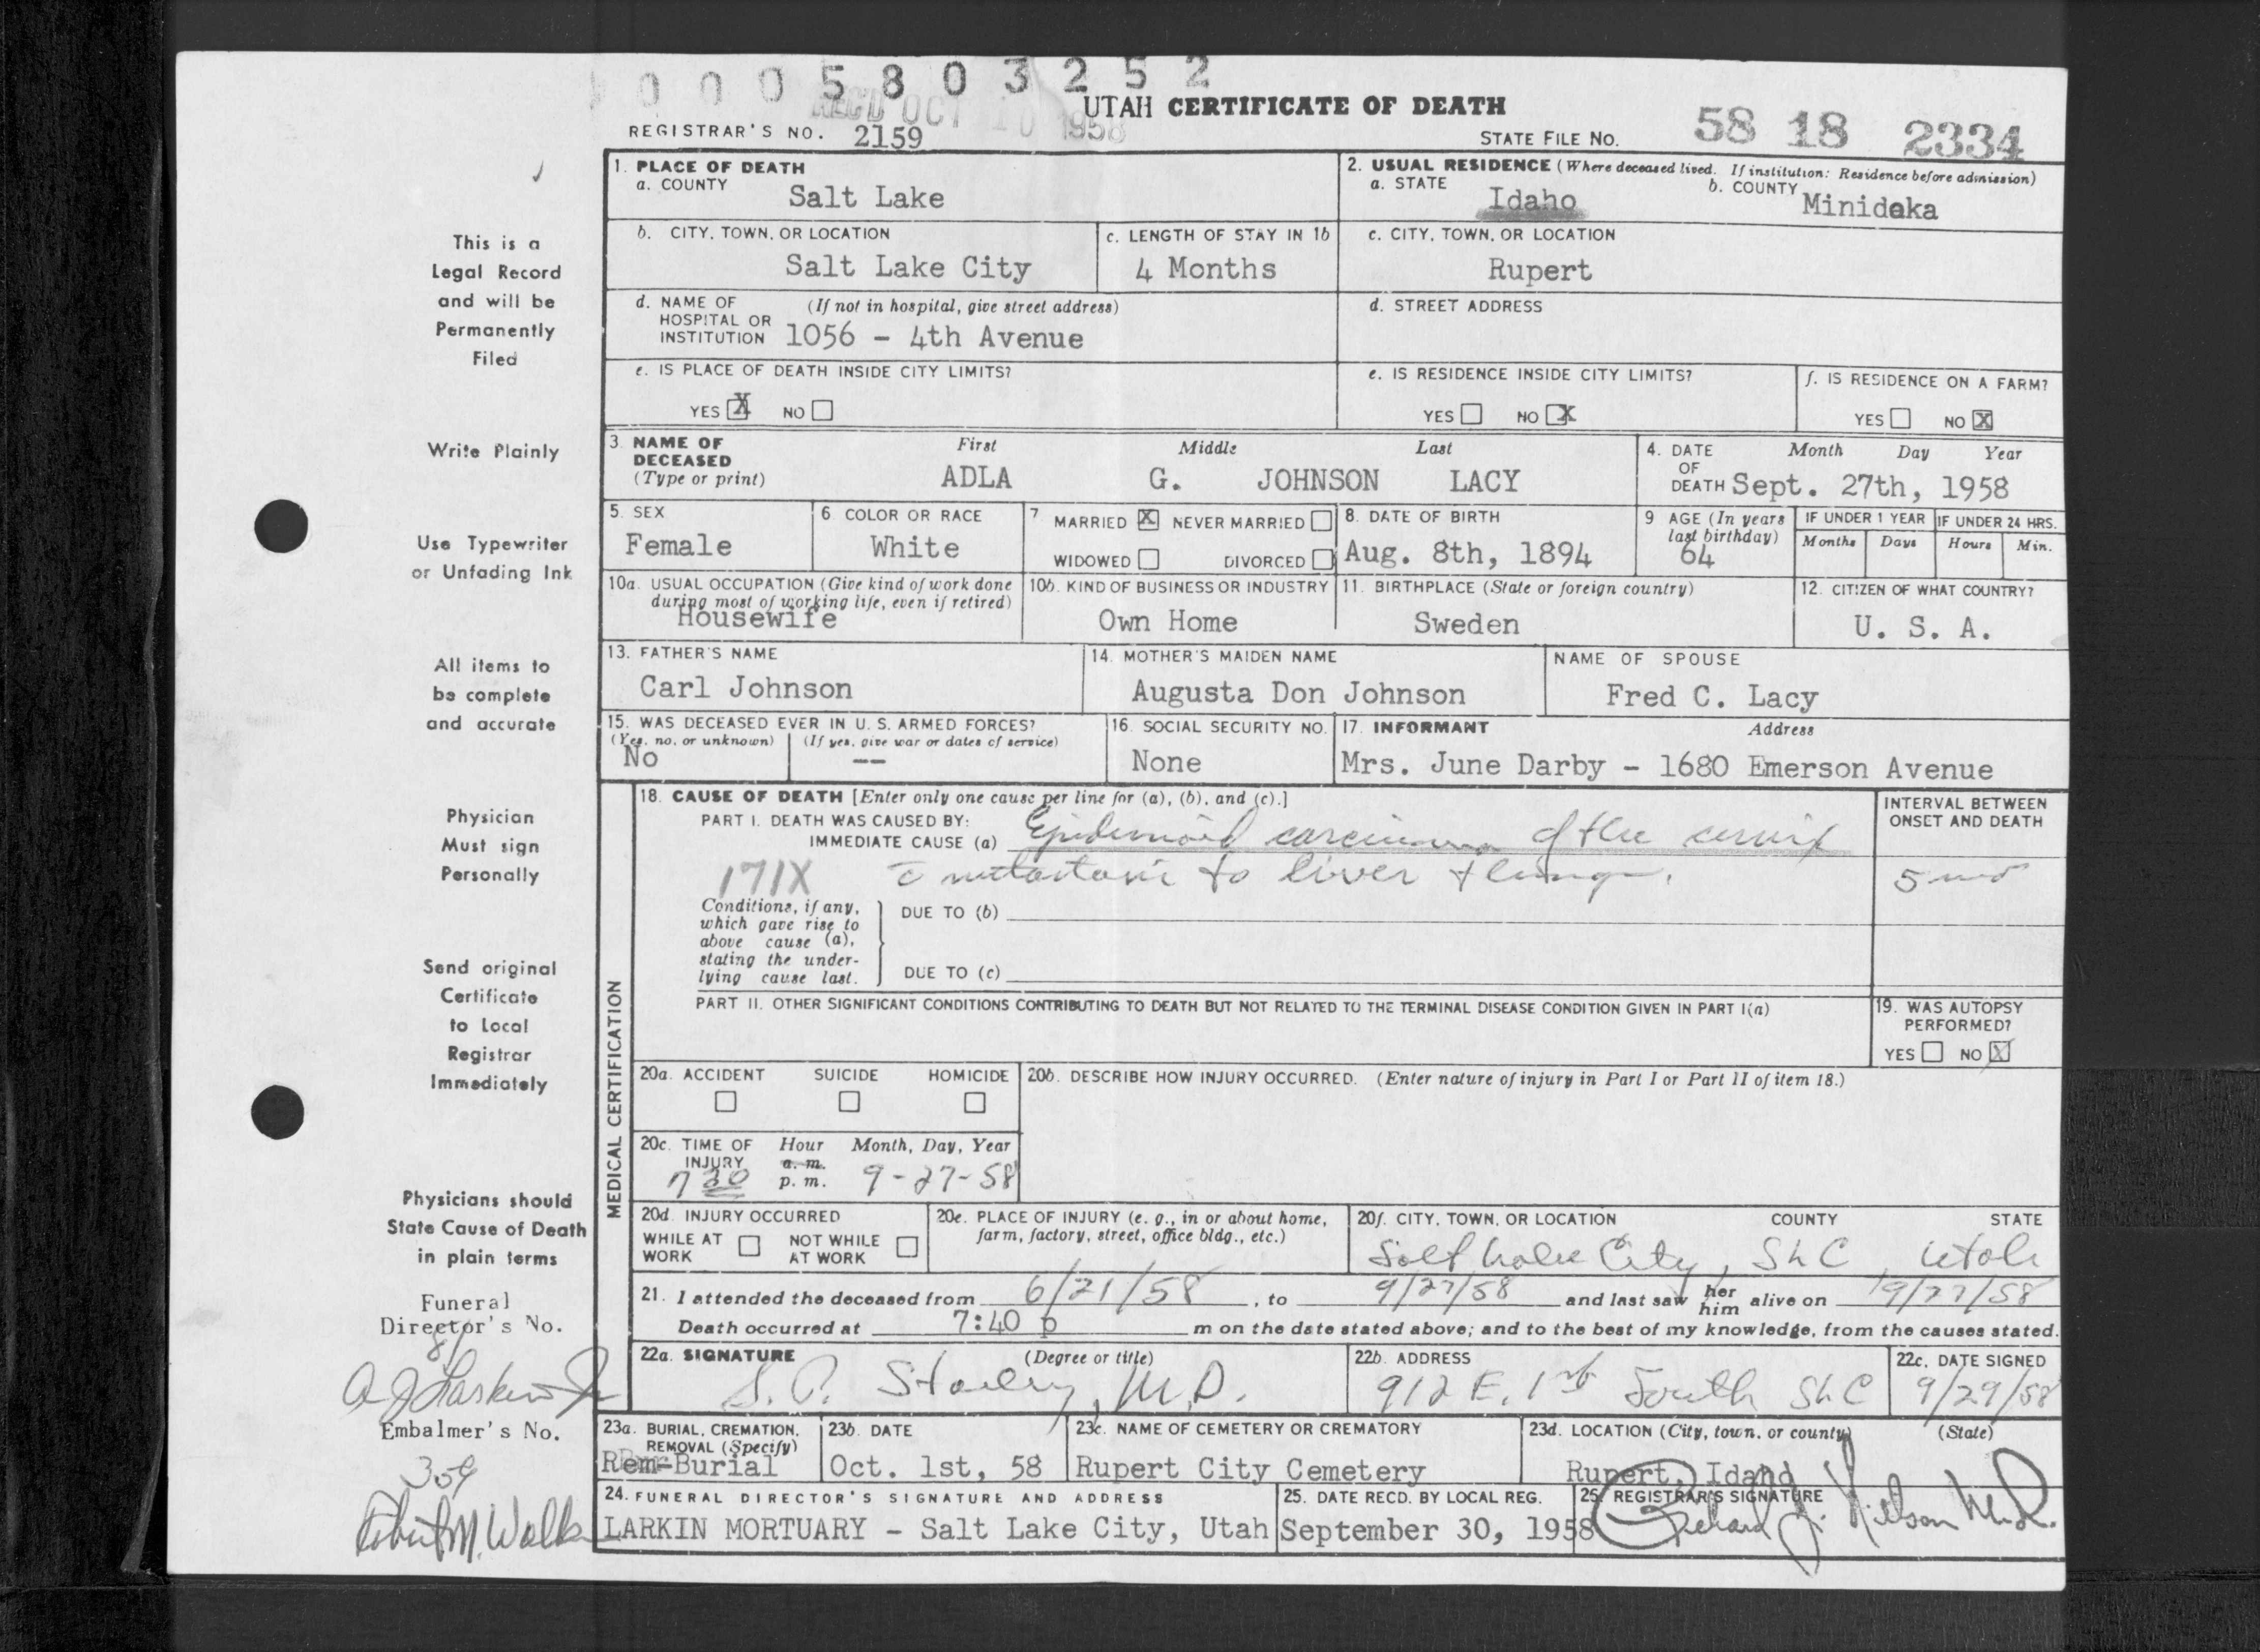 0005803252
REC'D OCT 10 1958
UTAH CERTIFICATE OF DEATH
REGISTRAR'S NO. 2159
STATE FILE NO. 58 18 2334
1. PLACE OF DEATH
a. COUNTY Salt Lake
2. USUAL RESIDENCE (Where deceased lived. If institution: Residence before admission)
a. STATE Idaho b. COUNTY Minidoka
b. CITY, TOWN, OR LOCATION Salt Lake City
c. LENGTH OF STAY IN 1b 4 Months
c. CITY, TOWN, OR LOCATION Rupert
d. NAME OF HOSPITAL OR INSTITUTION (If not in hospital, give street address) 1056 - 4th Avenue
d. STREET ADDRESS
e. IS PLACE OF DEATH INSIDE CITY LIMITS?
YES X NO
e. IS RESIDENCE INSIDE CITY LIMITS?
YES NO X
f. IS RESIDENCE ON A FARM?
YES NO X
3. NAME OF DECEASED (Type or print)
First Middle Last
ADLA G. JOHNSON LACY
4. DATE OF DEATH Month Day Year
Sept. 27th, 1958
5. SEX Female
6 COLOR OR RACE White
7 MARRIED X NEVER MARRIED
WIDOWED DIVORCED
8. DATE OF BIRTH Aug. 8th, 1894
9 AGE (In years last birthday) 64
IF UNDER 1 YEAR Months Days
IF UNDER 24 HRS. Hours Min.
10a. USUAL OCCUPATION (Give kind of work done during most of working life, even if retired) Housewife
10b. KIND OF BUSINESS OR INDUSTRY Own Home
11. BIRTHPLACE (State or foreign country) Sweden
12. CITIZEN OF WHAT COUNTRY? U. S. A.
13. FATHER'S NAME Carl Johnson
14. MOTHER'S MAIDEN NAME Augusta Don Johnson
NAME OF SPOUSE Fred C. Lacy
15. WAS DECEASED EVER IN U. S. ARMED FORCES?
(Yes, no, or unknown) (If yes, give war or dates of service)
No --
16. SOCIAL SECURITY NO. None
17. INFORMANT Address
Mrs. June Darby - 1680 Emerson Avenue
MEDICAL CERTIFICATION
18. CAUSE OF DEATH [Enter only one cause per line for (a), (b), and (c).]
PART I. DEATH WAS CAUSED BY:
IMMEDIATE CAUSE (a) Epidermoid carcinoma of the cervix
171X c metastasis to liver + lungs.
INTERVAL BETWEEN ONSET AND DEATH
5 mos
Conditions, if any, which gave rise to above cause (a), stating the underlying cause last.
DUE TO (b)
DUE TO (c)
PART II. OTHER SIGNIFICANT CONDITIONS CONTRIBUTING TO DEATH BUT NOT RELATED TO THE TERMINAL DISEASE CONDITION GIVEN IN PART I(a)
19. WAS AUTOPSY PERFORMED?
YES NO X
20a. ACCIDENT SUICIDE HOMICIDE
20b. DESCRIBE HOW INJURY OCCURRED. (Enter nature of injury in Part I or Part II of item 18.)
20c. TIME OF INJURY Hour Month, Day, Year
a. m.
p. m. 9-27-58
20d. INJURY OCCURRED
WHILE AT WORK NOT WHILE AT WORK
20e. PLACE OF INJURY (e. g., in or about home, farm, factory, street, office bldg., etc.)
20f. CITY, TOWN, OR LOCATION COUNTY STATE
Salt Lake City, SLC, Utah
21. I attended the deceased from 6/21/58, to 9/27/58 and last saw her him alive on 9/27/58
Death occurred at 7:40 p m on the date stated above; and to the best of my knowledge, from the causes stated.
22a. SIGNATURE (Degree or title)
M.D.
22b. ADDRESS
912 E. 1st South SLC
22c. DATE SIGNED
9/29/58
23a. BURIAL, CREMATION, REMOVAL (Specify)
Rem-Burial
23b. DATE
Oct. 1st, 58
23c. NAME OF CEMETERY OR CREMATORY
Rupert City Cemetery
23d. LOCATION (City, town, or county) (State)
Rupert, Idaho
24. FUNERAL DIRECTOR'S SIGNATURE AND ADDRESS
LARKIN MORTUARY - Salt Lake City, Utah
25. DATE RECD. BY LOCAL REG.
September 30, 1958
26. REGISTRAR'S SIGNATURE
Richard J. Nielson M.D.
This is a
Legal Record
and will be
Permanently
Filed
Write Plainly
Use Typewriter
or Unfading Ink
All items to
be complete
and accurate
Physician
Must sign
Personally
Send original
Certificate
to Local
Registrar
Immediately
Physicians should
State Cause of Death
in plain terms
Funeral
Director's No.
81
A J Larkin Jr
Embalmer's No.
359
Robert M. Walker